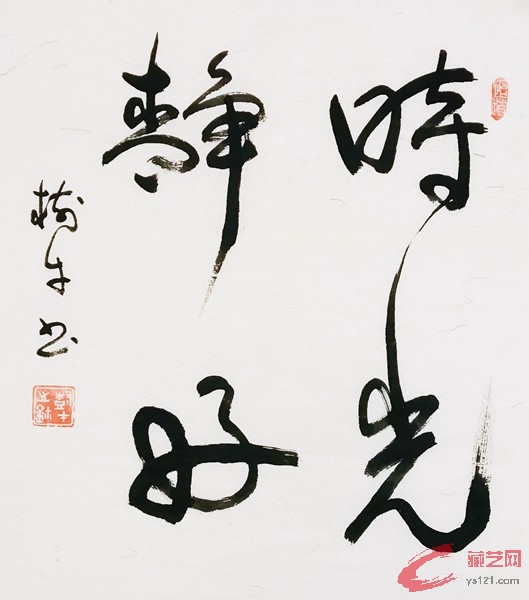 時光
靜好
樹生书
藏艺网
ys121.com